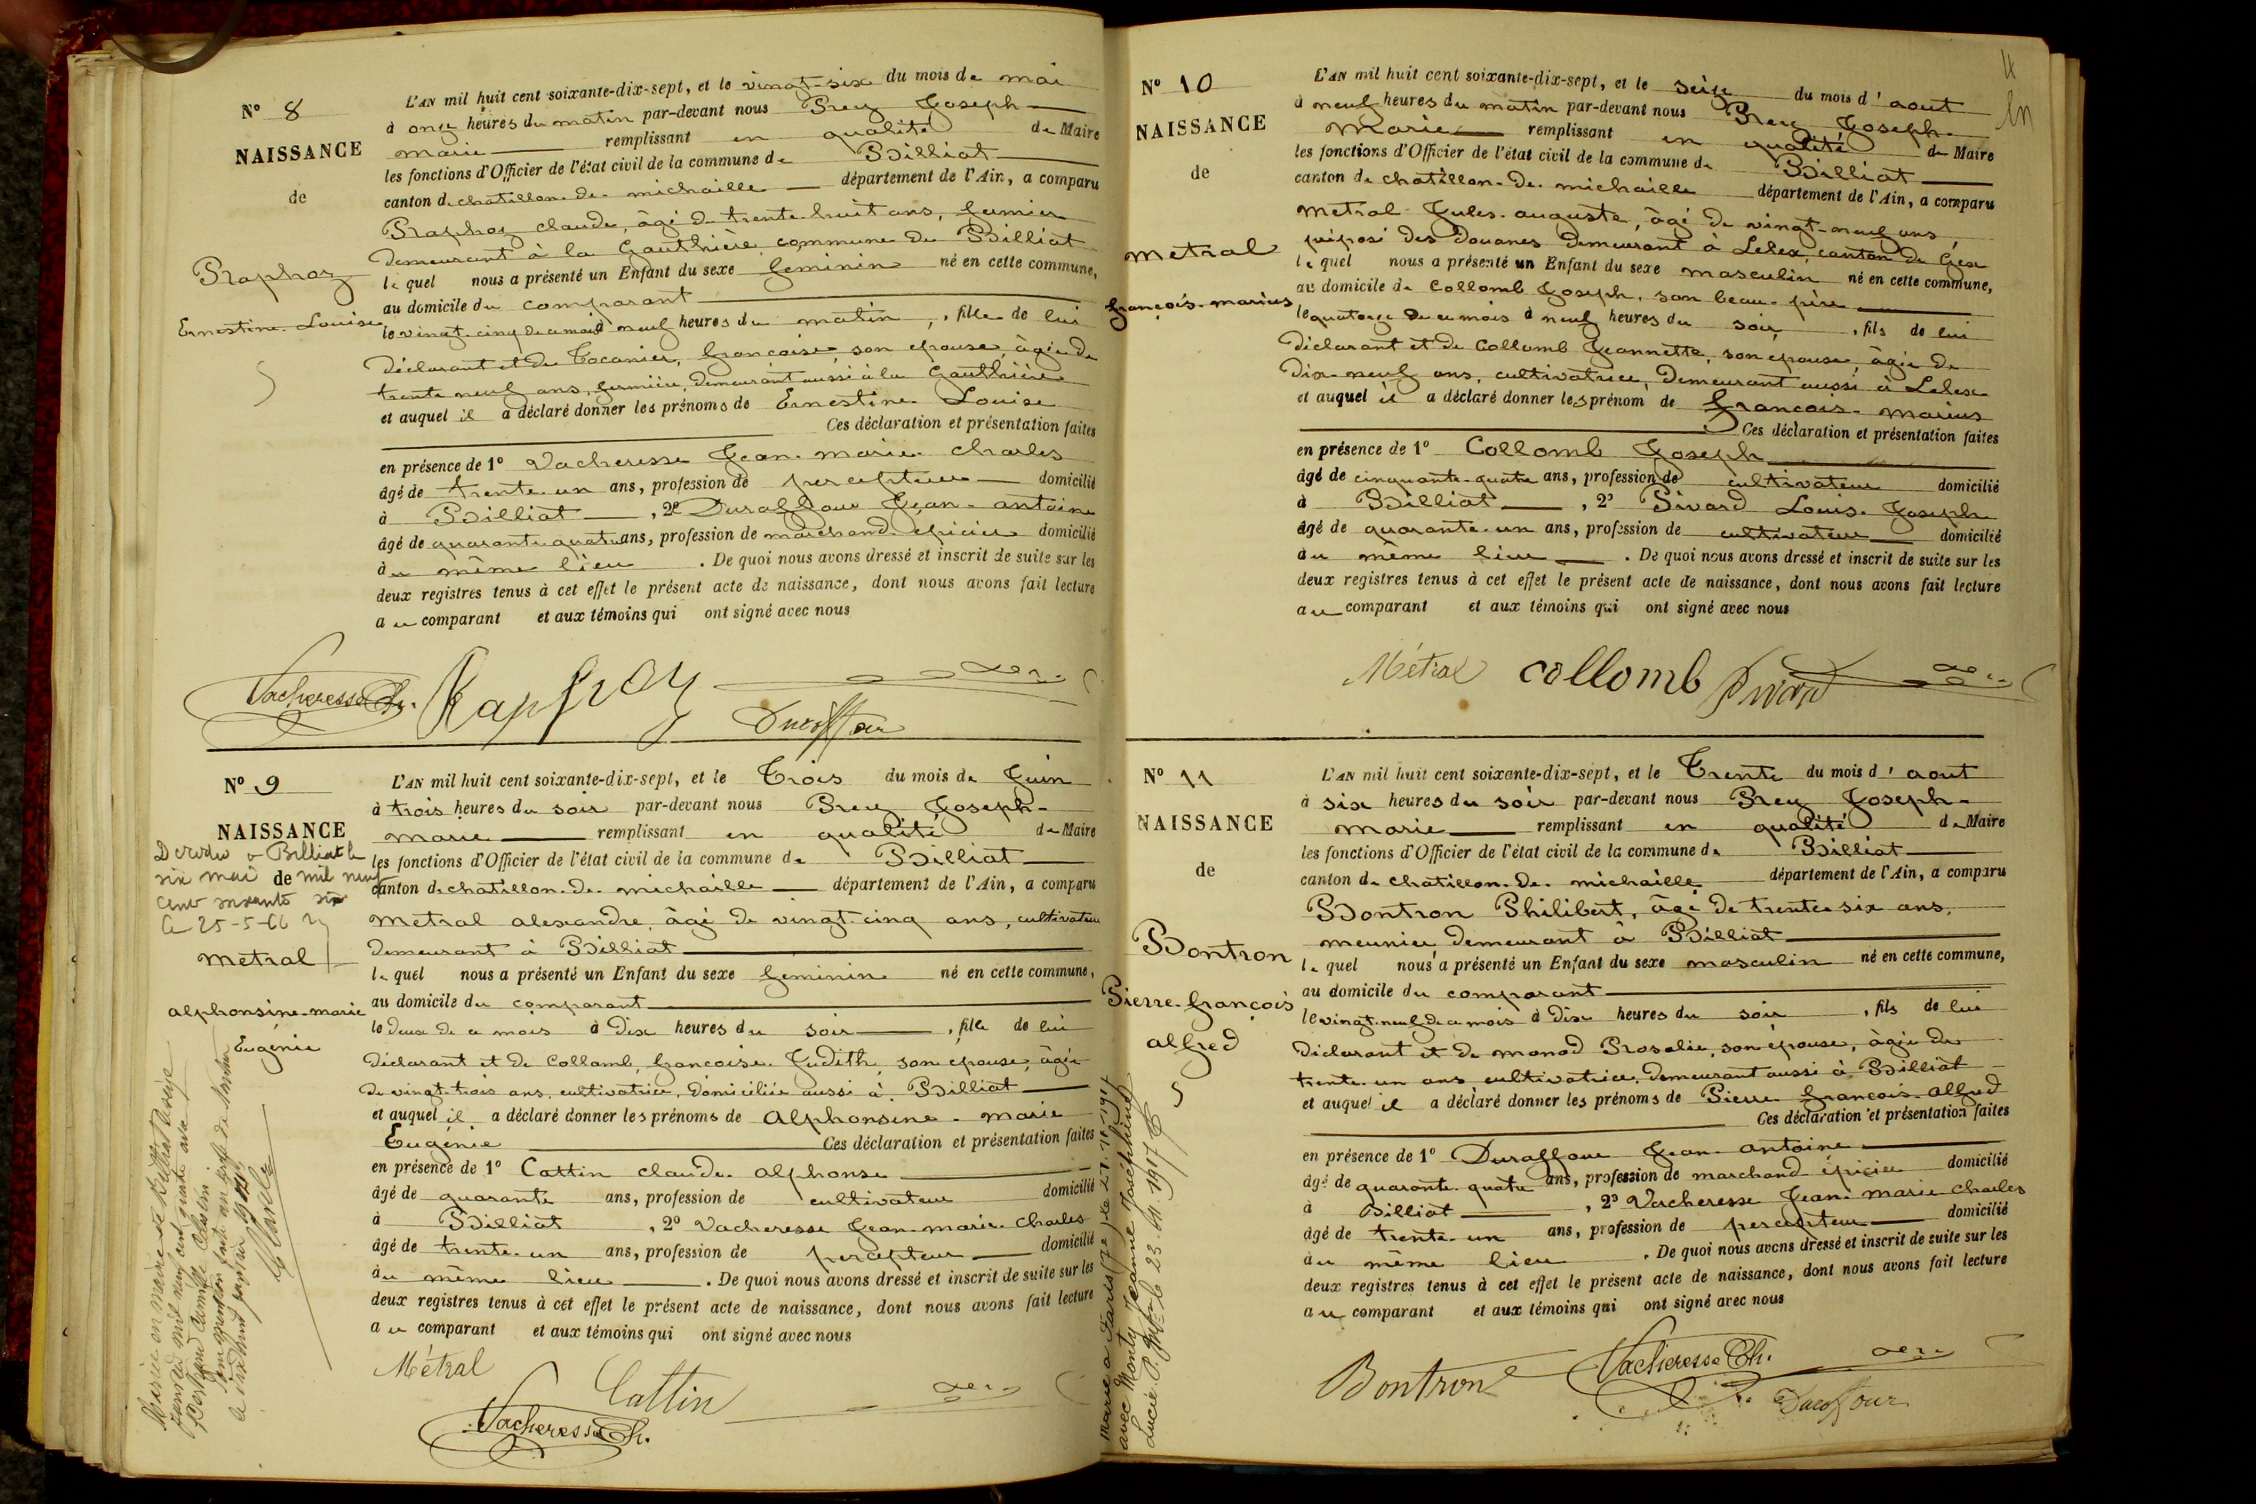 N° 8
NAISSANCE
de
Raphoz
Ernestine-Louise
L'AN mil huit cent soixante-dix-sept, et le vingt-six du mois de mai
à onze heures du matin par-devant nous Prey Joseph-
marie remplissant en qualité de Maire
les fonctions d'Officier de l'état civil de la commune de Billiat
canton de chatillon-de-michaille département de l'Ain, a comparu
Raphoz claude, âgé de trente-huit ans, fermier
demeurant à la Gauthière commune de Billiat
lequel nous a présenté un Enfant du sexe feminin né en cette commune,
au domicile du comparant
le vingt-cinq de ce mois à neuf heures du matin, fille de lui
déclarant et de Tocanier, francoise, son epouse, âgée de
trente neuf ans, fermière, demeurant aussi à la Gauthière
et auquel il a déclaré donner les prénoms de Ernestine Louise
Ces déclaration et présentation faites
en présence de 1° Vacheresse Jean-marie-Charles
âgé de trente-un ans, profession de percepteur domicilié
à Billiat, 2° Duraffour Jean-antoine
âgé de quarante-quatre ans, profession de marchand-epicier domicilié
au même lieu. De quoi nous avons dressé et inscrit de suite sur les
deux registres tenus à cet effet le présent acte de naissance, dont nous avons fait lecture
au comparant et aux témoins qui ont signé avec nous
Vacheresse Ch. Raphoz
Duraffour
N° 9
NAISSANCE
de
Décédée à Billiat le
six mai mil neuf
cent soixante six
le 25-5-66
metral
alphonsine-marie
Eugénie
L'AN mil huit cent soixante-dix-sept, et le Trois du mois de Juin
à trois heures du soir par-devant nous Prey Joseph-
marie remplissant en qualité de Maire
les fonctions d'Officier de l'état civil de la commune de Billiat
canton de chatillon-de-michaille département de l'Ain, a comparu
metral alexandre, âgé de vingt-cinq ans, cultivateur
demeurant à Billiat
lequel nous a présenté un Enfant du sexe feminin né en cette commune,
au domicile du comparant
le deux de ce mois à dix heures du soir, fille de lui
déclarant et de Collomb, francoise-Judith, son épouse, âgée
de vingt-trois ans, cultivatrice, domiciliée aussi à Billiat
et auquel il a déclaré donner les prénoms de alphonsine-marie
Eugénie Ces déclaration et présentation faites
en présence de 1° Cattin claude-alphonse
âgé de quarante ans, profession de cultivateur domicilié
à Billiat, 2° Vacheresse Jean-marie-Charles
âgé de trente-un ans, profession de percepteur domicilié
au même lieu. De quoi nous avons dressé et inscrit de suite sur les
deux registres tenus à cet effet le présent acte de naissance, dont nous avons fait lecture
au comparant et aux témoins qui ont signé avec nous
Métral
Cattin
Vacheresse Ch.
N° 10
NAISSANCE
de
metral
françois-marius
L'AN mil huit cent soixante-dix-sept, et le seize du mois d'aout
à neuf heures du matin par-devant nous Prey Joseph-
marie remplissant en qualité de Maire
les fonctions d'Officier de l'état civil de la commune de Billiat
canton de chatillon-de-michaille département de l'Ain, a comparu
metral Jules-auguste, âgé de vingt-neuf ans,
préposé des douanes demeurant à Lelex, canton de Gex
lequel nous a présenté un Enfant du sexe masculin né en cette commune,
au domicile de Collomb Joseph, son beau-père
le quatorze de ce mois à neuf heures du soir, fils de lui
déclarant et de Collomb Jeannette, son epouse, âgée de
dix-neuf ans, cultivatrice, demeurant aussi à Lelex
et auquel il a déclaré donner les prénom de francois-marius
Ces déclaration et présentation faites
en présence de 1° Collomb Joseph
âgé de cinquante-quatre ans, profession de cultivateur domicilié
à Billiat, 2° Pivard Louis-Joseph
âgé de quarante-un ans, profession de cultivateur domicilié
au même lieu. De quoi nous avons dressé et inscrit de suite sur les
deux registres tenus à cet effet le présent acte de naissance, dont nous avons fait lecture
au comparant et aux témoins qui ont signé avec nous
Métral collomb Pivard
N° 11
NAISSANCE
de
Bontron
Pierre-françois
alfred
Marié à Paris
avec Monty Jeanne Joséphine
L'AN mil huit cent soixante-dix-sept, et le Trente du mois d'aout
à six heures du soir par-devant nous Prey Joseph-
marie remplissant en qualité de Maire
les fonctions d'Officier de l'état civil de la commune de Billiat
canton de chatillon-de-michaille département de l'Ain, a comparu
Bontron Philibert, âgé de trente-six ans,
meunier demeurant à Billiat
lequel nous a présenté un Enfant du sexe masculin né en cette commune,
au domicile du comparant
le vingt-neuf de ce mois à dix heures du soir, fils de lui
déclarant et de monod Rosalie, son épouse, âgée de
trente-un ans cultivatrice, demeurant aussi à Billiat
et auquel il a déclaré donner les prénoms de Pierre-francois-alfred
Ces déclaration et présentation faites
en présence de 1° Duraffour Jean-antoine
âgé de quarante-quatre ans, profession de marchand épicier domicilié
à Billiat, 2° Vacheresse Jean-marie-Charles
âgé de trente-un ans, profession de percepteur domicilié
au même lieu. De quoi nous avons dressé et inscrit de suite sur les
deux registres tenus à cet effet le présent acte de naissance, dont nous avons fait lecture
au comparant et aux témoins qui ont signé avec nous
Bontron Vacheresse Ch.
Duraffour